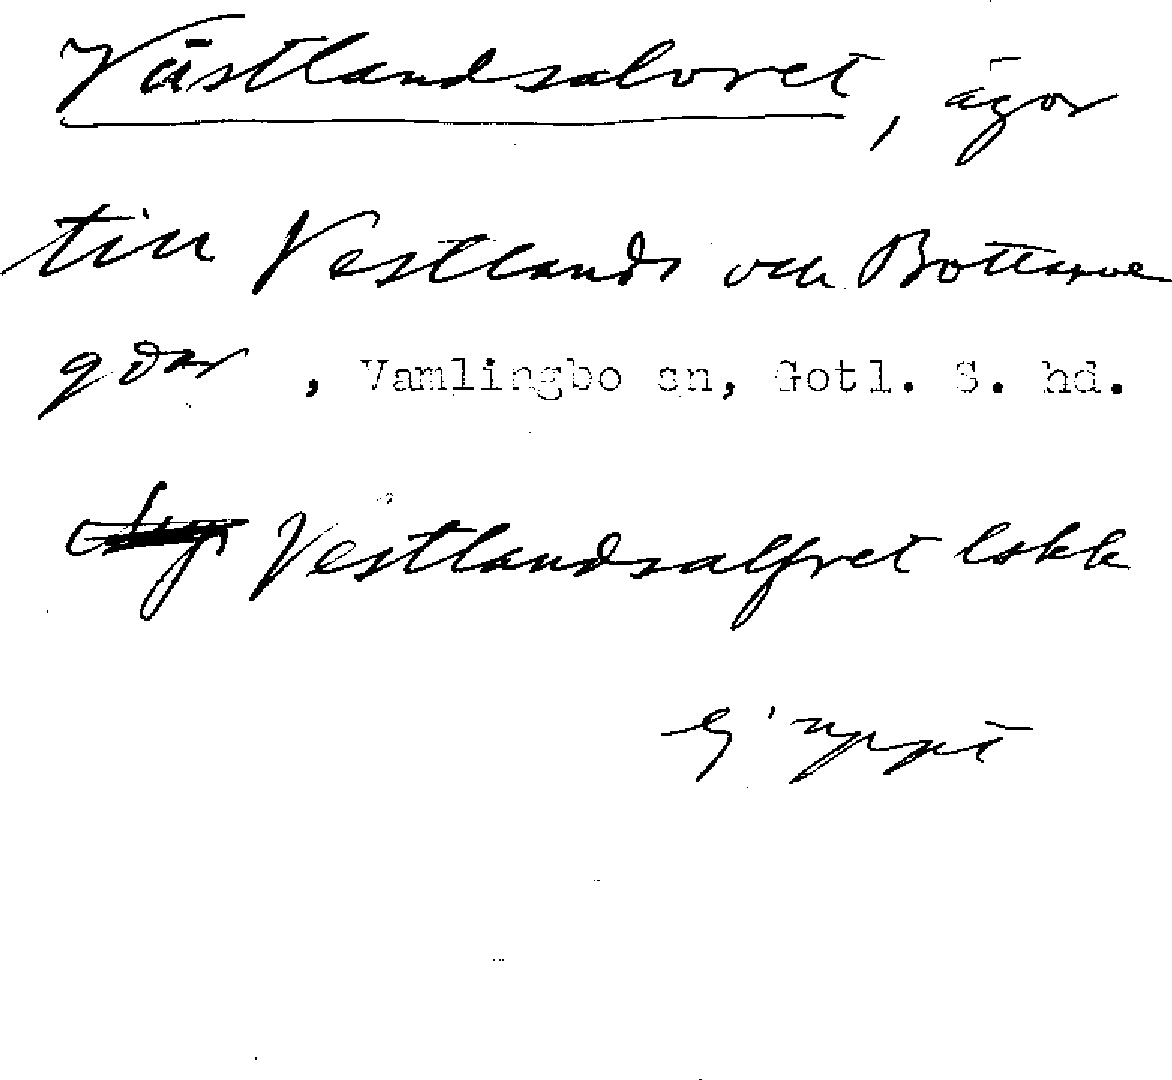 Västlandsalvret, ägor
till Vestlands och Bottarve
gdar, Vamlingbo sn, Gotl. S. hd.
Vestlandsalfret lokk
G. uppt